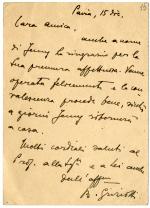 Pavia, 15 dic.
Cara amica,
anche a nome
di Jenny la ringrazio per la
sua premura affettuosa. Venne
operata felicemente e la con-
valescenza procede bene, sicché
a giorni Jenny ritornerà
a casa.
Molti cordiali saluti al
Prof. e a lei anche
dell'aff.